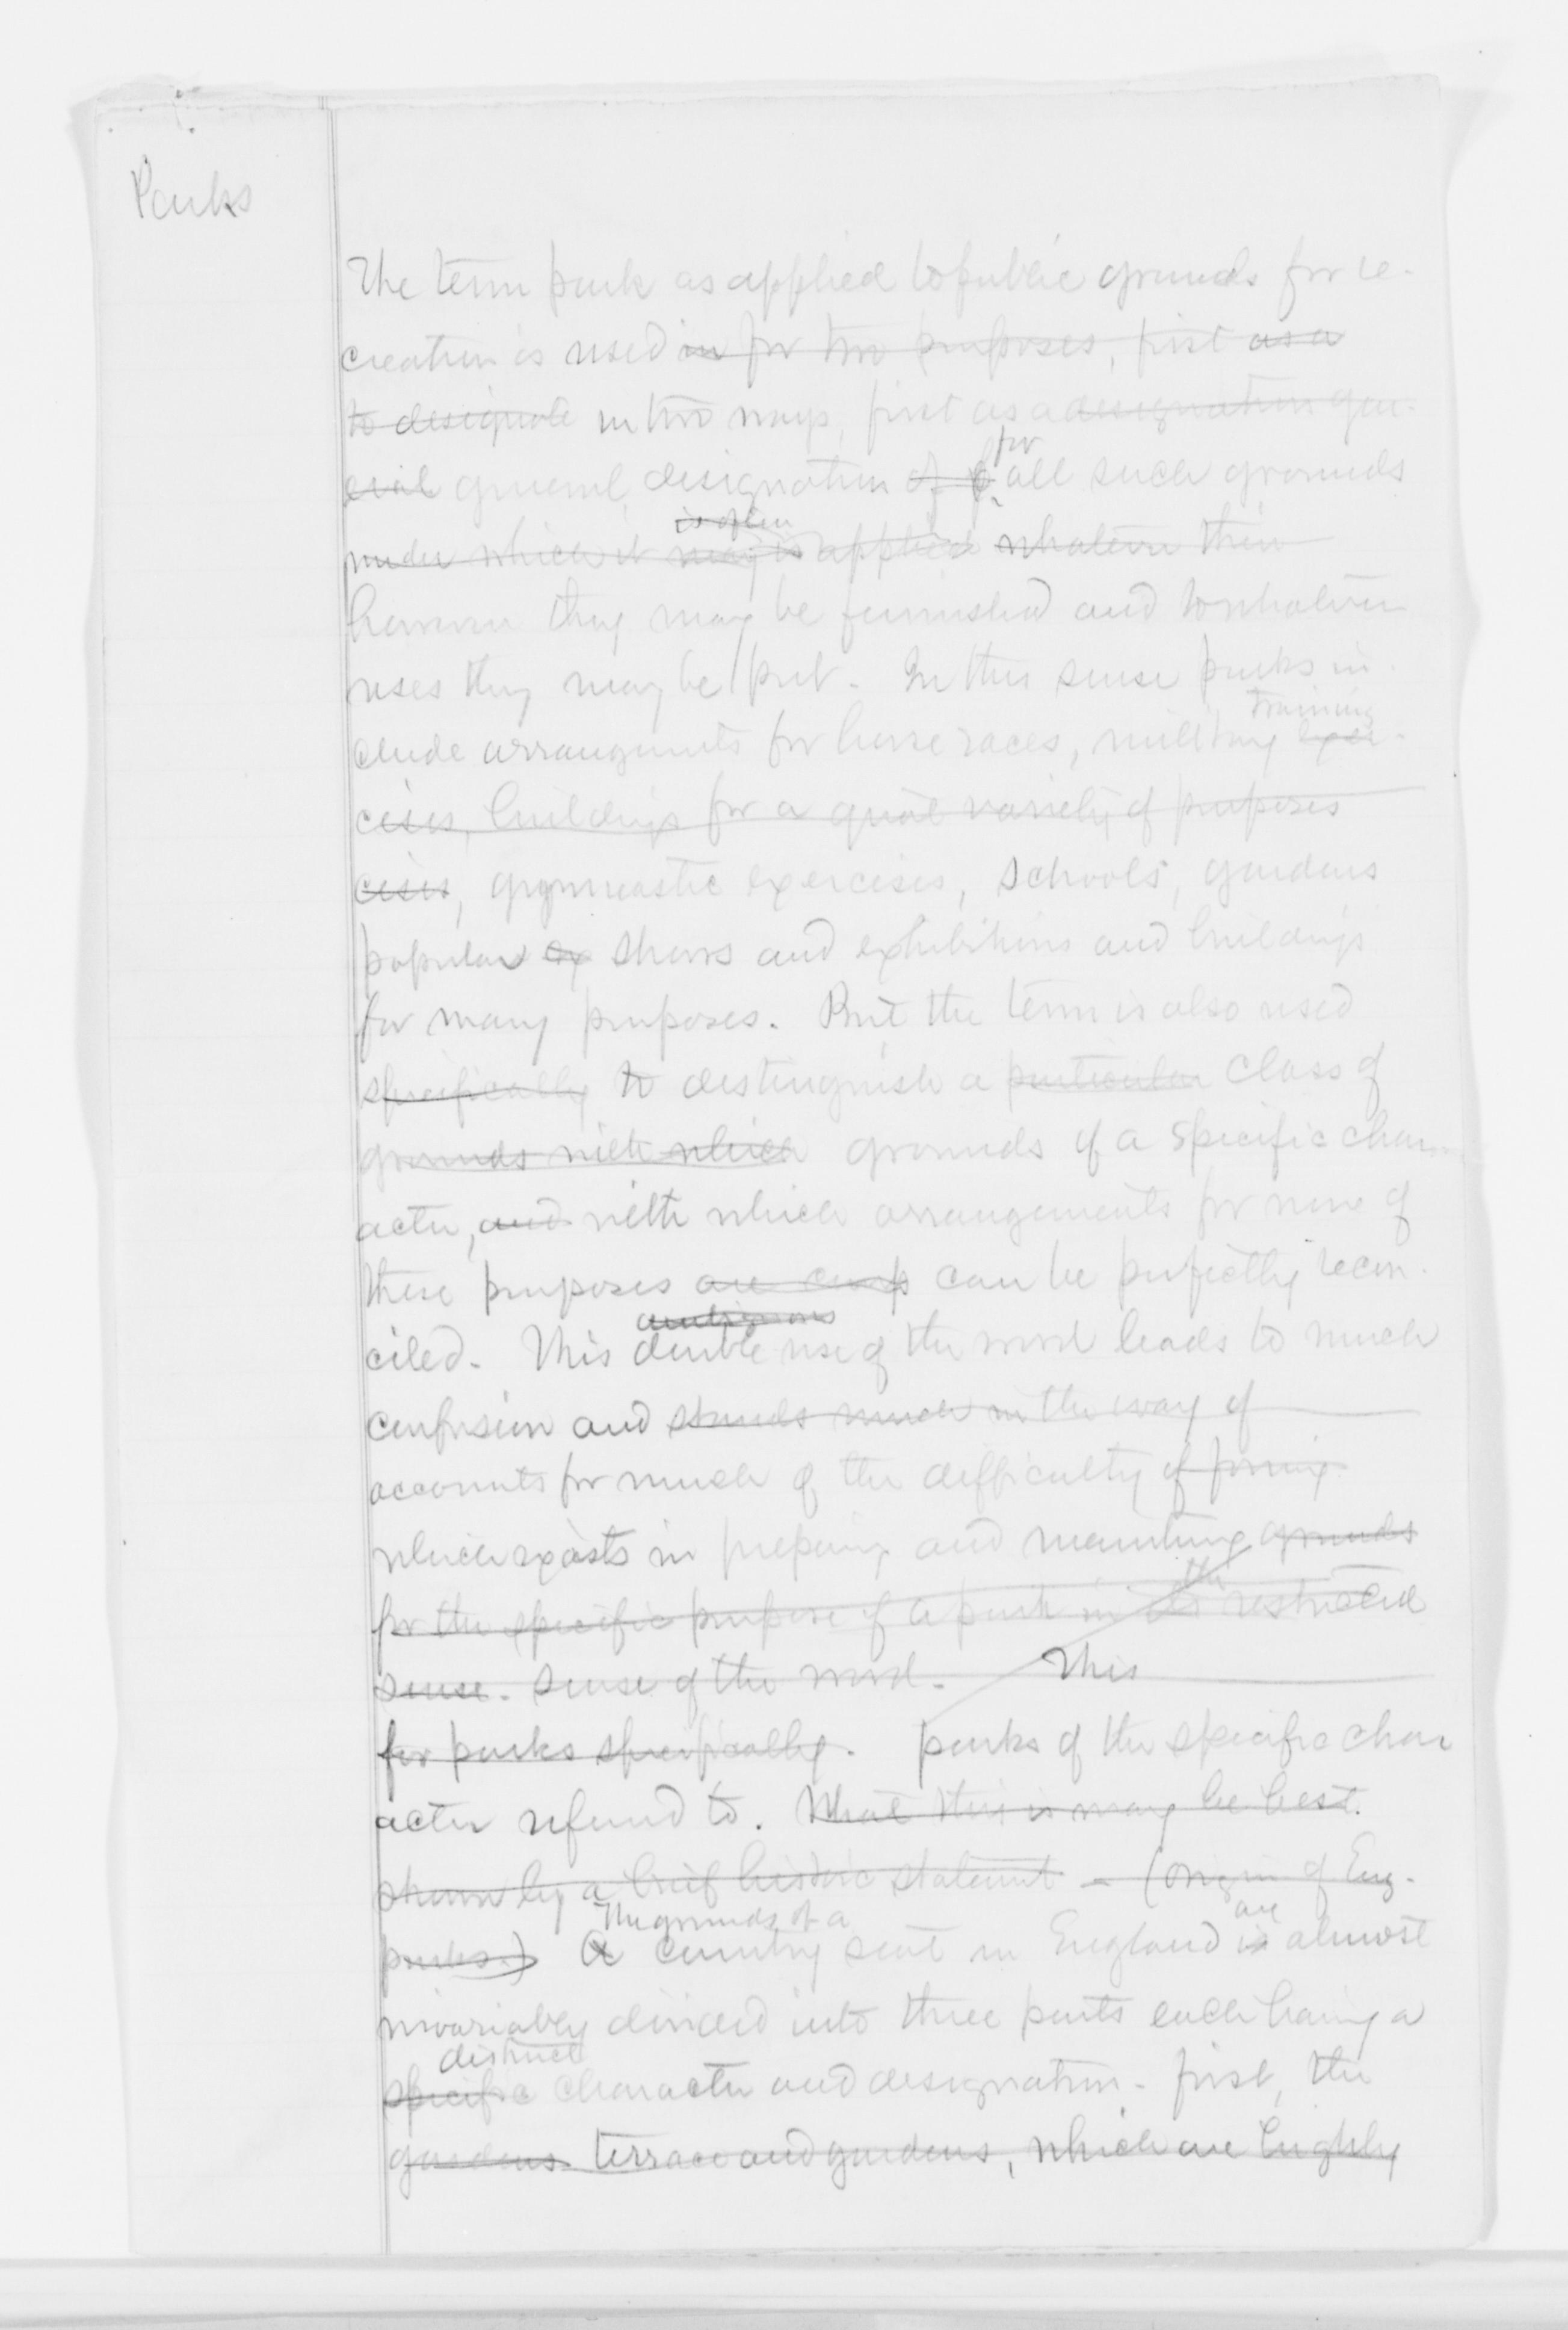 Parks
The term park as applied to public grounds for re-
creation is used in for two purposes, first as a
to designate in two ways, first as a designation gen-
eral general designation of for all such grounds
is often
under which it may is applied whatever their
however they may be furnished and to whatever
uses they may be put. In this sense parks in-
training
clude arrangements for horse races, military exer-
cises, buildings for a great variety of purposes
cises, gymnastic exercises, schools, gardens
popular ex shows and exhibitions and buildings
for many purposes. But the term is also used
specifically to distinguish a particular class of
grounds with which grounds of a specific char-
acter, and with which arrangements for none of
these purposes are comp can be perfectly recon-
ambiguous
ciled. This double use of the word leads to much
confusion and stands much in the way of
accounts for much of the difficulty of forming
which exists in preparing and mainting grounds
the
for the specific purpose of a park in its restricted
sense. sense of the word. This
for parks specifically. parks of the specific char
acter referred to. What this is may be best
shown by a brief historic statement - (origin of Eng.
The grounds of a are
parks.) A country seat in England is almost
invariably divided into three parts each having a
distinct
specific character and designation. first, the
gardens terrace and gardens, which are highly